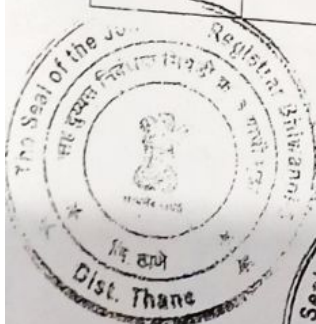 The Seal of the Joi
Registrar Bhiwandi
सह दुय्यम निबंधक भिवंडी क्र. ३
सत्यमेव जयते
जि. ठाणे
Dist. Thane
Sea